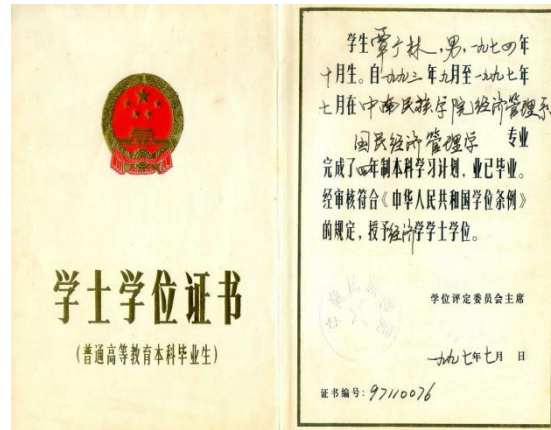 学士学位证书
(普通高等教育本科毕业生)
学生覃广林,男,一九七四年
十月生。自一九九三年九月至一九九七年
七月在中南民族学院经济管理系
国民经济管理学 专业
完成了四年制本科学习计划,业已毕业。
经审核符合《中华人民共和国学位条例》
的规定,授予经济学学士学位。
学位评定委员会主席
一九九七年七月 日
证书编号:97110076